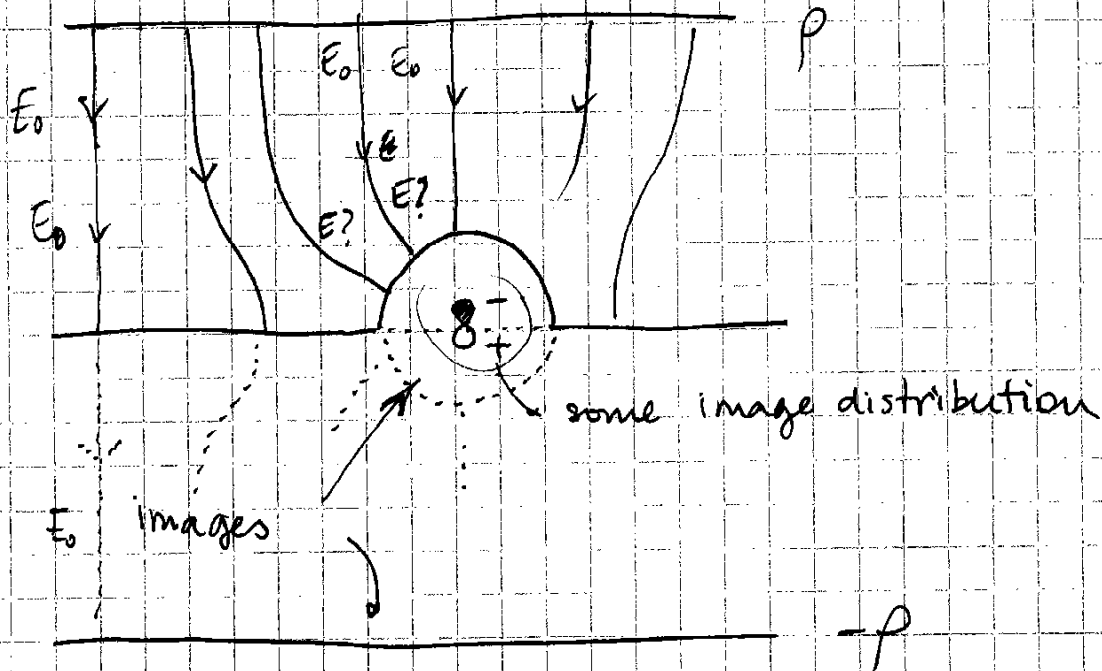 ρ
E₀ E₀
E₀
E?
E?
E₀
-
+
some image distribution
images
E₀
-ρ